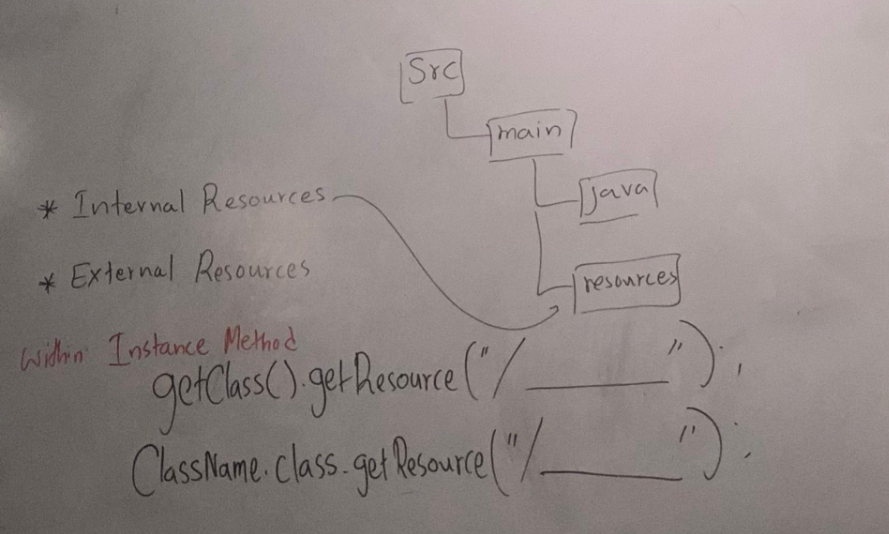 Src
main
java
* Internal Resources
* External Resources
resources
Within Instance Method
getClass().getResource("/________");
ClassName.class.getResource("/________");